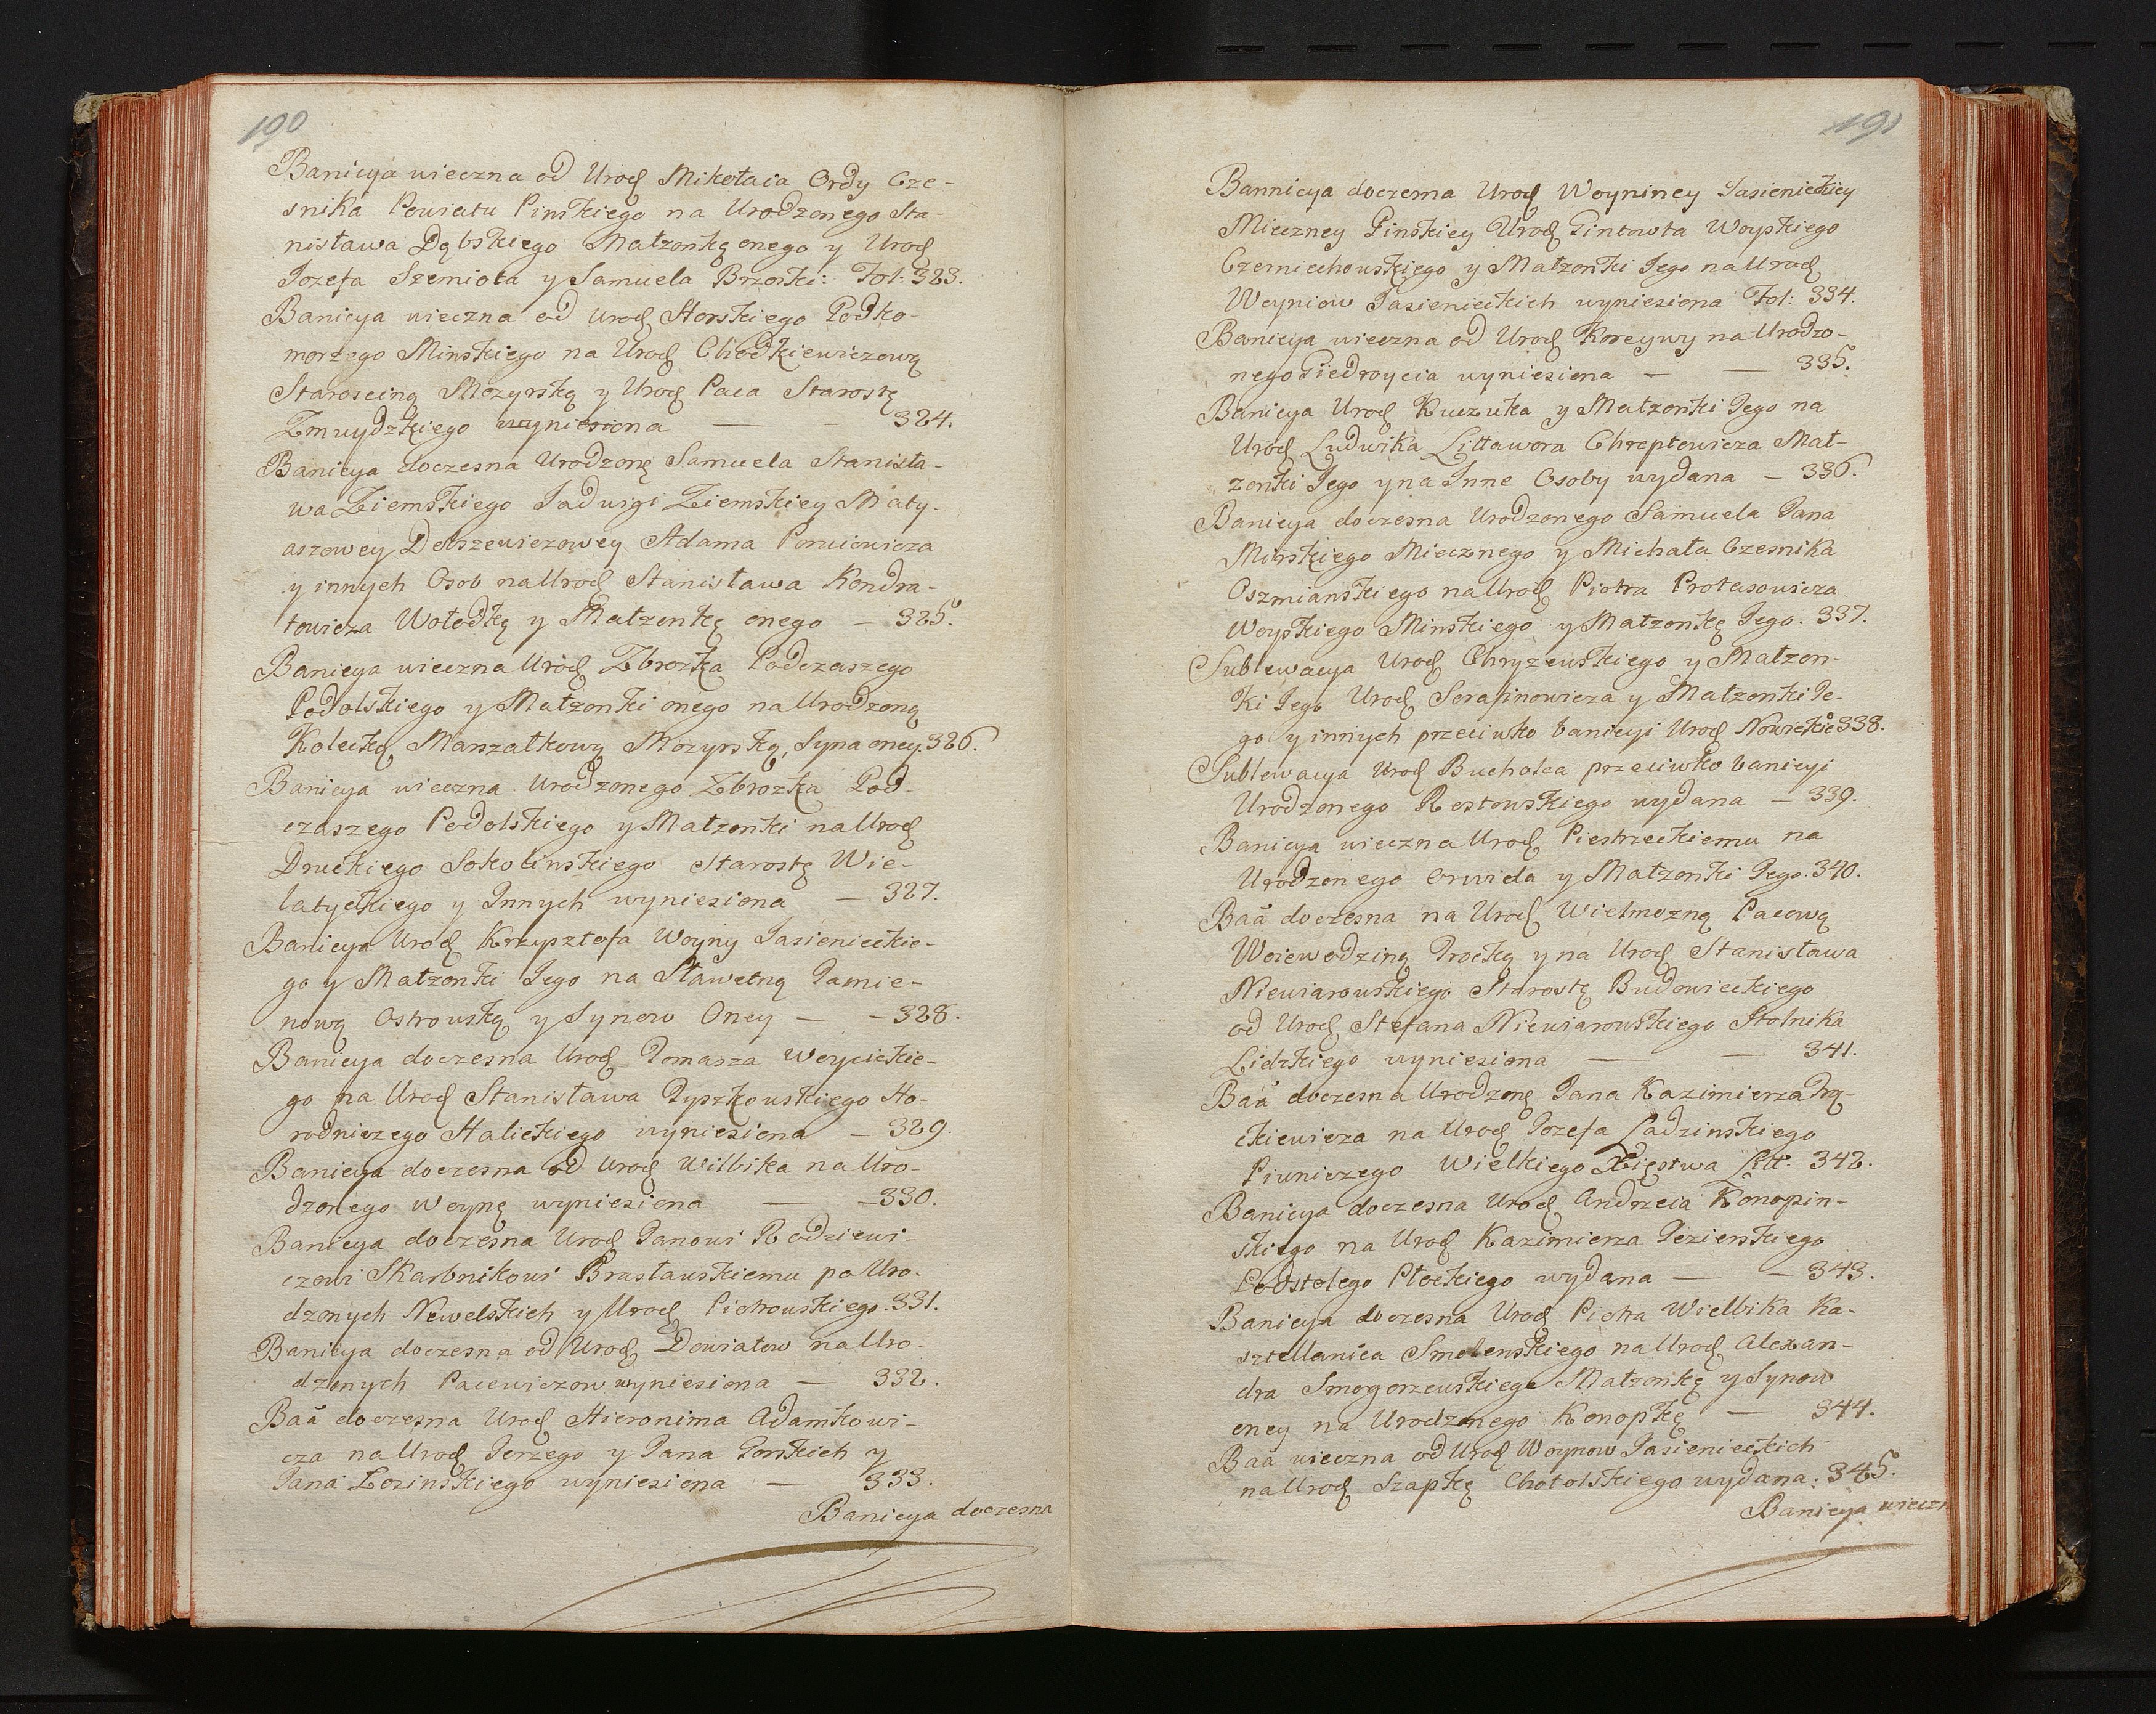 190
Banicya wieczna od Urod Mikołaia Ordy Cze-
snika Powiatu Pinskiego na Urodzonego Sta-
nisława Dębskiego Małzonkę onego y Urod
Jozefa Szemiota y Samuela Brzoski: Fol: 323.
Banicya wieczna od Urod Horskiego Podko-
morzego Minskiego na Urod Chodkiewiczową
Staroscinę Mozyrską y Urod Paca Starostę
Zmuydzkiego wyniesiona — - 324.
Banicya doczesna Urodzonę Samuela Stanisła-
wa Ziemskiego Jadwigi Ziemskiey Maty-
aszowey Adama
y innych Osob na Urod Stanisława Kondra-
towicza Wołodkę y Małzonkę onego — 325.
Banicya wieczna Urod Zbrozka Podczaszego
Podolskiego y Małzonki onego na Urodzoną
Kolecką Marszałkową Mozyrską, Syna oney. 326.
Banicya wieczna Urodzonego Zbrozka Pod-
czaszego Podolskiego y Małzonki na Urod
Druckiego Sokolinskiego Starostę Wie-
latyckiego y Innych wyniesiona — 327.
Banicya Urod Krzysztofa Woyny Jasienieckie-
go y Małzonki Jego na Sławetną Jamie-
nową Ostrowską y Synow Oney — - 328.
Banicya doczesna Urod Tomasza Woycickie-
go na Urod Stanisława Tyszkowskiego Ho-
rodniczego Halickiego wyniesiona — 329.
Banicya doczesna od Urod Wilbika na Uro-
dzonego Woynę wyniesiona — - 330.
Banicya doczesna Urod Janowi Rodziewi-
czowi Skarbnikowi Brasławskiemu po Uro-
dzonych Newelskich y Urod Piotrowskiego. 331.
Banicya doczesna od Urod Dowiatow na Uro-
dzonych Pacewiczow wyniesiona — 332.
Baa doczesna Urod Hieronima Adamkowi-
cza na Urod Jerzego y Jana Gorskich y
Jana Łozinskiego wyniesiona — 333.
Banicya doczesna
191
Bannicya doczesna Urod Woyniney Jasienieckiey
Mieczney Pinskiey Urod Gintowta Woyskiego
Czerniechowskiego y Małzonki Jego na Urod
Woyniow Jasienieckich wyniesiona Fol: 334.
Banicya wieczna od Urod Koreywy na Urodzo-
nego Giedroycia wyniesiona — — 335.
Banicya Urod Kuczuka y Małzonki Jego na
Urod Ludwika Littawora Chreptowicza Mał-
zonki Jego y na Inne Osoby wydana — 336.
Banicya doczesna Urodzonego Samuela Jana
Mirskiego Miecznego y Michała Czesnika
Oszmianskiego na Urod Piotra Protasowicza
Woyskiego Minskiego y Małzonkę Jego. 337.
Sublewacya Urod Chryzewskiego y Małzon-
ki Jego Urod Serafinowicza y Małzonki Je-
go y innych przeciwko banicyi Urod 338.
Sublewacya Urod Bucholca przeciwko banicyi
Urodzonego Rostowskiego wydana — 339.
Banicya wieczna Urod Piestrzeckiemu na
Urodzonego Orwida y Małzonki Jego. 340.
Baa doczesna na Urod Wielmozną Pacową
Woiewodziną Trocką y na Urod Stanisława
Niewiarowskiego Starostę Budowieckiego
od Urod Stefana Niewiarowskiego Stolnika
Lidzkiego wyniesiona — — 341.
Baa doczesna Urodzonę Jana Kazimierza Frą-
ckiewicza na Urod Jozefa Ladzinskiego
Piwniczego Wielkiego Xięstwa Litt. 342.
Banicya doczesna Urod Andrzeia Konopin-
skiego na Urod Kazimierza Jezierskiego
Podstolego Płockiego wydana — - 343.
Banicya doczesna Urod Piotra Wielbika Ka-
sztellanica Smolenskiego na Urod Alexan-
dra Smogorzewskiego Małzonkę y Synow
oney na Urodzonego Konopkę — 344.
Baa wieczna od Urod Woynow Jasienieckich
na Urod Szapkę Chotolskiego wydana: 345.
Banicya wieczn